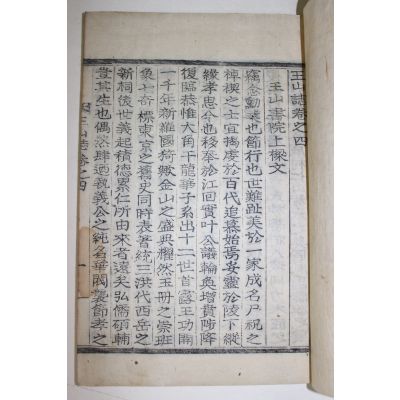 王山誌卷之四
王山書院上樑文
竊念勳業也節行也世難趾美於一家成名尸祝之
之士宜揭虔於百代追慕始焉妥靈於陵下縱
緣孝思今也移奉於江回實叶公議輪奐增賁陟降
復臨恭惟大角干龍華子系出十二世首露王功開
一千年新羅國猗歟金山之盛典耀然玉冊之崇班
象七奇標東京之舊史同時表著統三洪代西岳之
新祠後世義起積德累仁所由來者遠矣弘儒碩輔
豈其生也偶然肆迺執義公之純名華閥襲節孝之
王山誌卷之四
一